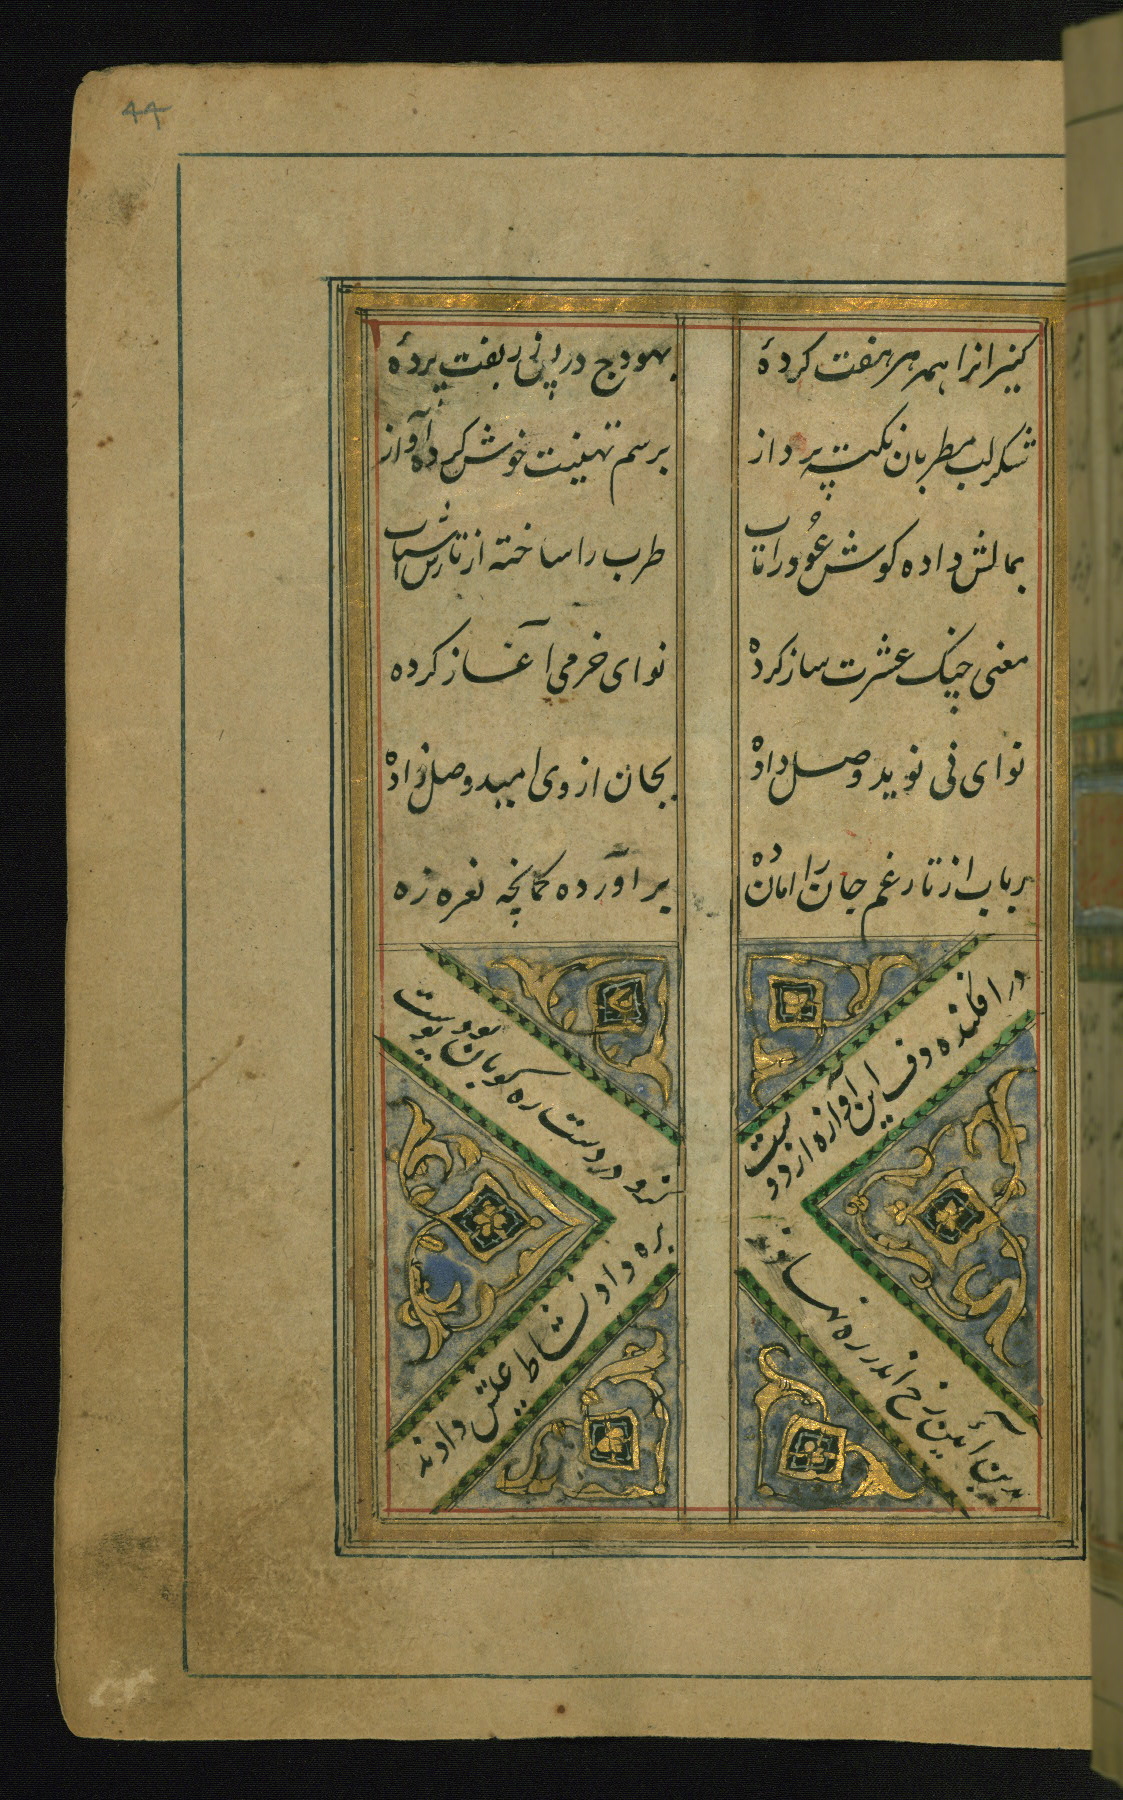 ۴۴
کنیزانرا همه هر هفت کردهٔ
بهودج در پی زربفت پردهٔ
شکر لب مطربان نکته پرداز
برسم تهنیت خوش کرده آواز
بمالش داده کوش عود را تاب
طرب را ساخته از تارش اسباب
مغنی چنک عشرت ساز کرده
نوای خرمی آغاز کرده
نوای نی نوید وصل داده
بجان از وی امید وصل زاده
رباب از تار غم جان را امان ده
بر آورده کمانچه نعره زه
در افکنده دف این آوازه از دوست
کزو در دست ره کوبان بود پوست
بدین آئین رخ اندر ره نهادند
بره داد نشاط عیش دادند